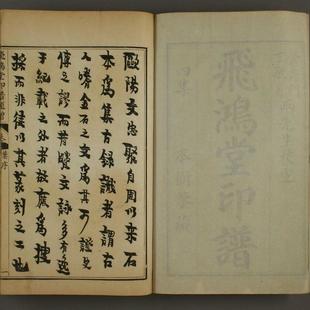 飛鴻堂印譜
歐陽文忠聚自周以來石
本爲集古錄識者謂古
人嗜金石之文爲其可證史
傳之謬而昔賢文詠多有逸
于紀載之外者故搜
採而非徒以其篆刻之工也